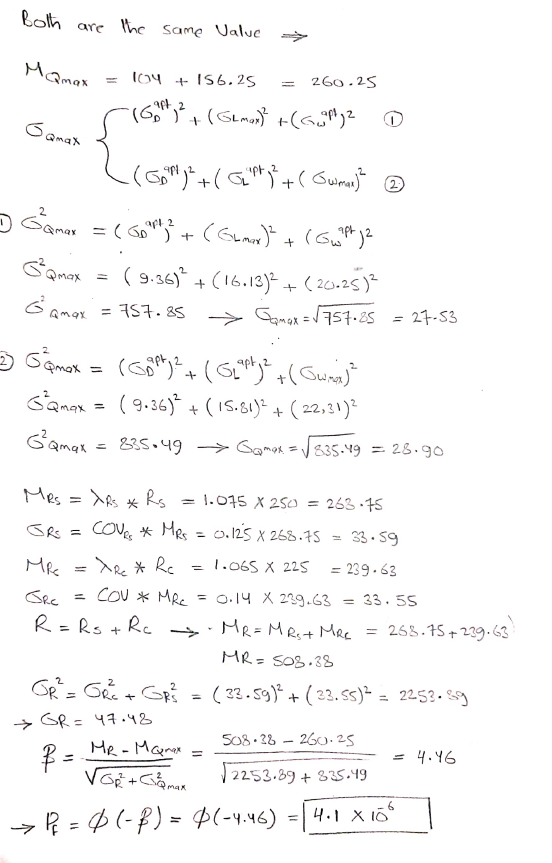 Both are the same value ⇒
MQmax = 104 + 156.25 = 260.25
σQmax { (σD^apt)² + (σLmax)² + (σw^apt)² ①
(σD^apt)² + (σL^apt)² + (σwmax)² ②
① σ²Qmax = (σD^apt)² + (σLmax)² + (σw^apt)²
σ²Qmax = (9.36)² + (16.13)² + (20.25)²
σ²Qmax = 757.85 → σQmax = √757.85 = 27.53
② σ²Qmax = (σD^apt)² + (σL^apt)² + (σwmax)²
σ²Qmax = (9.36)² + (15.81)² + (22,31)²
σ²Qmax = 835.49 → σQmax = √835.49 = 28.90
MRs = λRs * Rs = 1.075 X 250 = 268.75
σRs = COVRs * MRs = 0.125 X 268.75 = 33.59
MRc = λRc * Rc = 1.065 X 225 = 239.63
σRc = COV * MRc = 0.14 X 239.63 = 33.55
R = Rs + Rc → MR = MRs + MRc = 268.75 + 239.63
MR = 508.38
σR² = σRc² + σRs² = (33.59)² + (33.55)² = 2253.89
→ σR = 47.48
β = (MR - MQmax) / √(σR² + σ²Qmax) = (508.38 - 260.25) / √(2253.89 + 835.49) = 4.46
→ PF = Φ(-β) = Φ(-4.46) = 4.1 X 10^-6